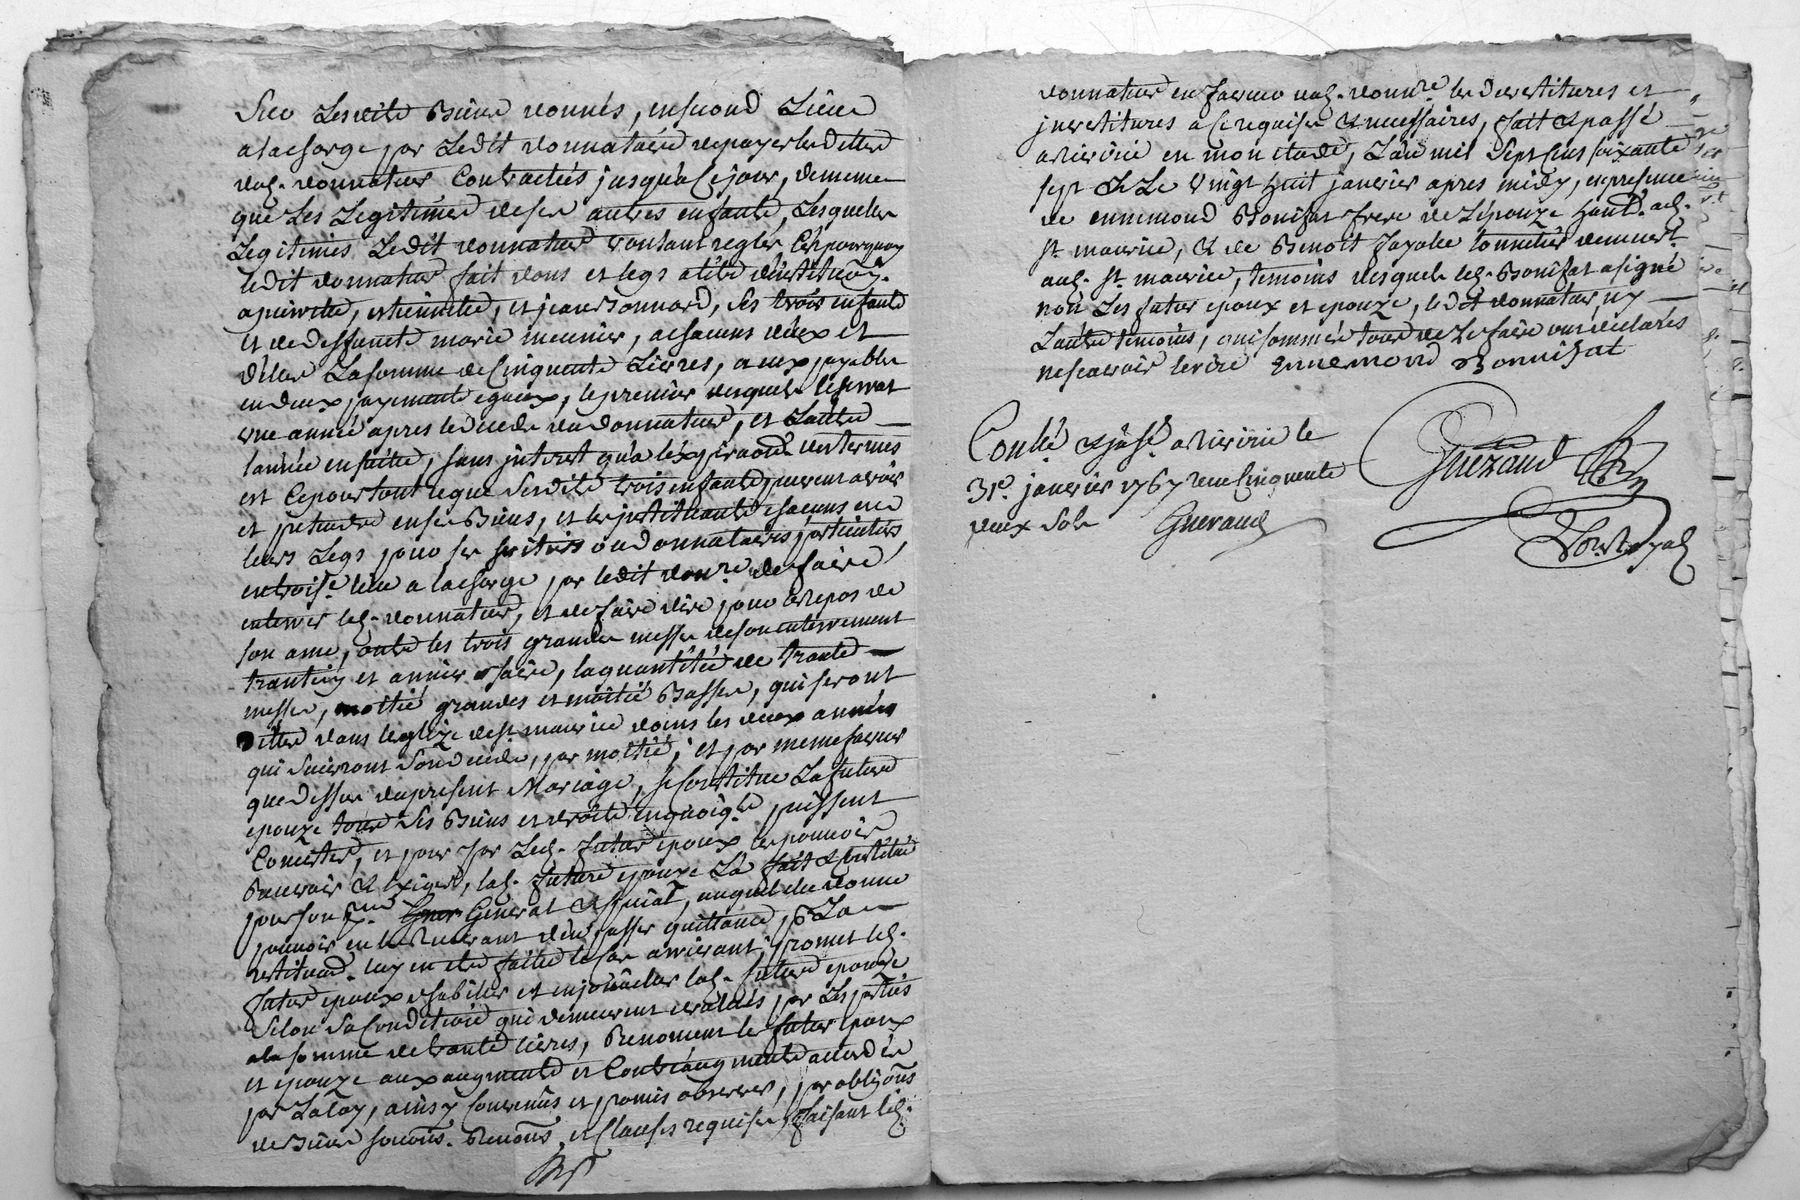 Sur lesdits Biens donnés, en second Lieu
a la charge par Ledit donnataire de payer les dettes
dud. donnateur Contractées jusqu'a ce jour, de meme
que Les Legitimes de ses autres enfants, Lesquelles
Legitimes Ledit donnateur voulant regler C'est pourquoy
ledit donnateur fait dons et legs a titre d'institution
a pierrette, estiennette, et jean Bonnard, ses trois enfants
et de deffuncte marie meunier, a chacuns d'eux et
d'elles La somme de Cinquante Livres, a eux payable
en deux payements egaux, le premier desquels
une année apres le deceds du donnateur, et L'autre
l'année en suitte, sans interest qu'a l'expiration des termes
et Ce pour tout ce que Sesdits trois enfants peuvent avoir
et pretendre en ses Biens, et les instituants chacuns en
leurs Legs pour ses heritiers ou donnataires particuliers
en troise. lieu a la charge par ledit donre. de faire
enterrer led. donnateur, et de faire dire pour le repos de
son ame, outre les trois grandes messes de son enterrement
trantin et anniversaire, la quantité de trante
messes, moitié grandes et moitié Basses, qui seront
dittes dans l'eglize de st. maurice dans les deux années
qui suivront Son deceds, par moitié; et par meme faveur
que dessus du present Mariage, se Constitue La future
epouze tous Ses Biens et droits en quoiq. puissent
Concister, et pour par Led. futur epoux les pouvoir
Recevoir et exiger, lad. future epouze L'a fait et Constitué
pour son General et special, auquel elle donne
pouvoir en les Recevant d'en passer quittance,
restituon. luy en etre faitte le Cas arrivant; promet led.
futur epoux d'habiller et enjoüailler lad. future epouze
Selon Sa Condition qui demeurent evalués par Les parties
a la somme de trante livres, Renoncent les futur epoux
et epouze aux augments et Contreaugments accordés
par La loy, ainsy Convenus et promis observer, par obligons
de Biens soumons. Renons. et Clauses requises, Faisant led.
donnateur en faveur dud. donre. les devestitures et
investitures a ce requises et necessaires, fait et passé
a Riverie en mon etude, L'an mil Sept Cent soixante
sept et Le vingt huit janvier apres midy, en presence
de ennemond Bonifat frere de L'epouze hant. aud.
st. maurice, et de Benoit fayolle tonnelier demeurt.
aud. st. maurice, temoins desquels led. Bonifat a signé
non Les futur epoux et epouze, ledit donnateur, ny
L'autre temoins, qui sommés tous de Le faire ont déclarés
ne scavoir levire Ennemond Bonnifat
Guerand
Conlé. a Riverie le
31e. janvier 1767 reçu Cinquante
deux Sols Guerand